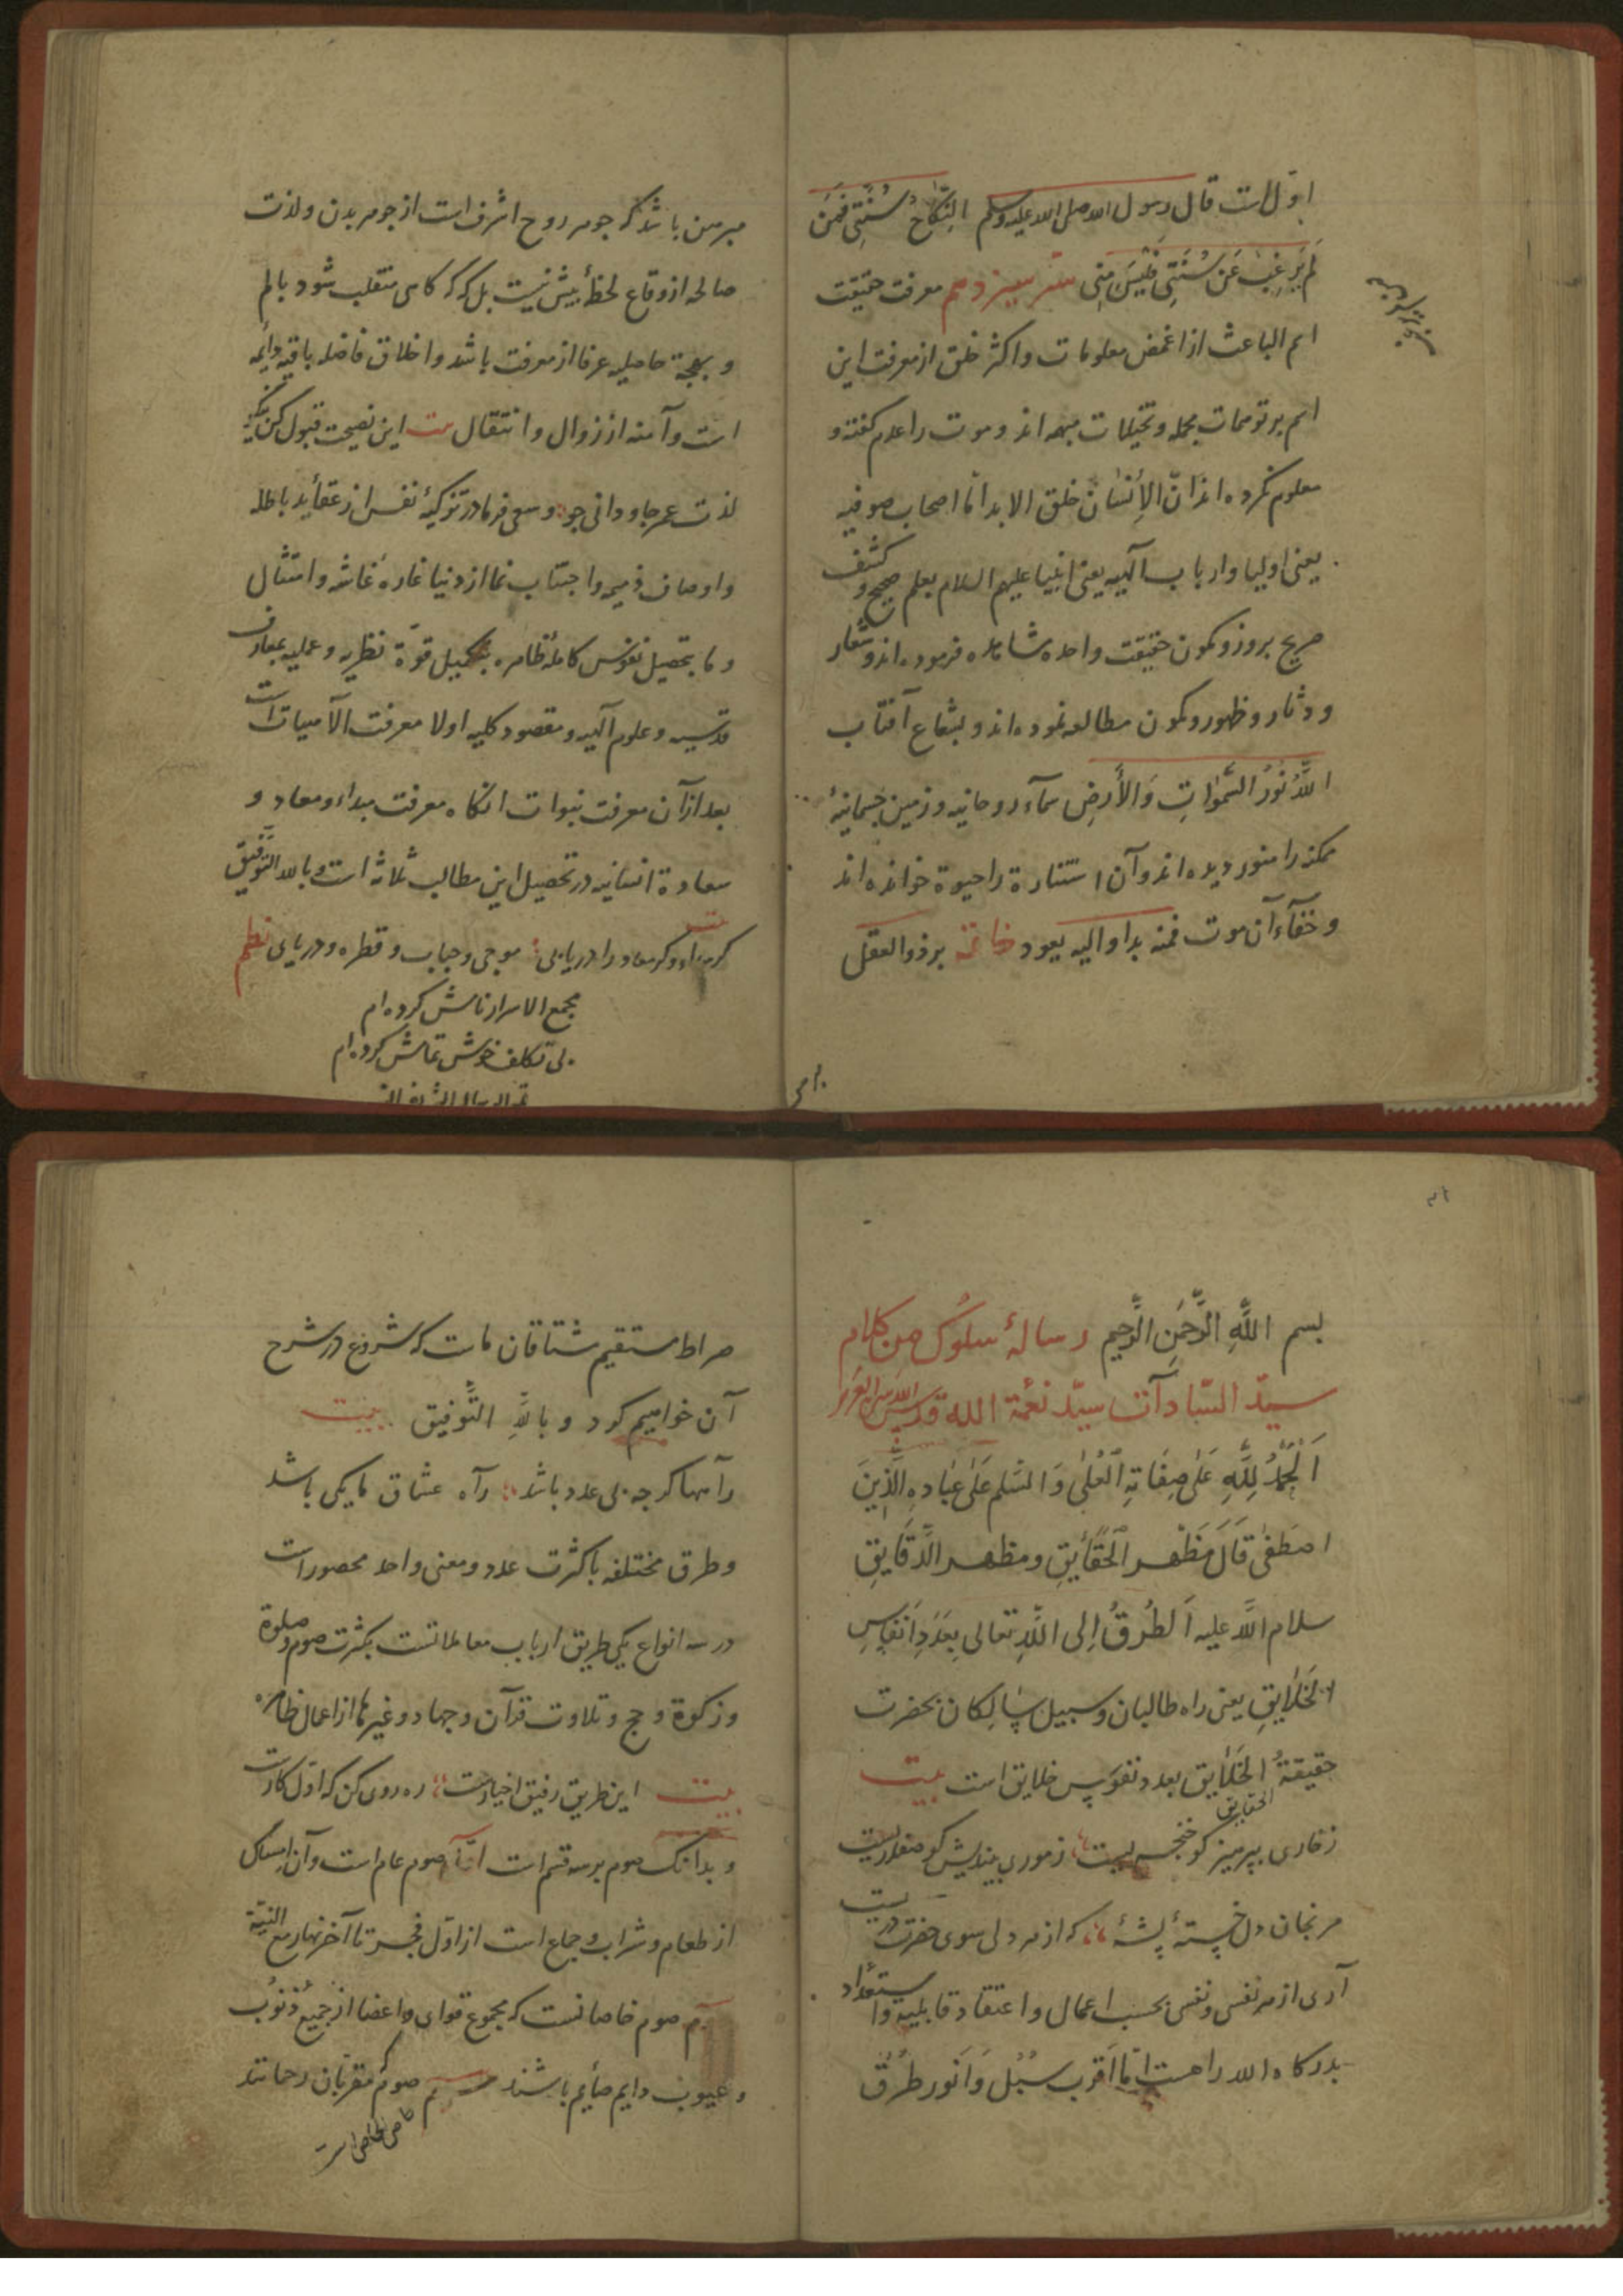 اولات قال رسول الله صلی الله علیه وسلم النِّکاحُ سُنَّتِی فَمَن
لَم یَرغَب عَن سُنَّتِی فَلَیسَ مِنِّی سر سیزدهم معرفت حقیقت
اسم الباعث از اغمض معلومات و اکثر خلق از معرفت این
اسم بر توهمات مجمله و تخیلات مبهمه اند و موت را عدم گفته و
معلوم نکرده اند انّ الاِنسان خلق الابد امّا اصحاب صوفیه
یعنی اولیا و ارباب آلهیه یعنی انبیا علیهم السلام بعلم صحیح و کشف
صریح بروز و کمون حقیقت واحده مشاهده فرموده اند و شعار
و دثار و ظهور و کمون مطالعه نموده اند و بشعاع آفتاب
اللّٰهُ نُورُ السَّمٰواتِ وَالأَرضِ سمآء روحانیه و زمین جسمانیهٔ
ممکنه را منور دیده اند و آن استنارة را حیوة خوانده اند
و خفآء آن موت فمنه بدا و الیه یعود خاتمه بر ذو العقل
مبرهن باشد که جوهر روح اشرف است از جوهر بدن و لذت
صالحه از وقاع لحظهٔ بیش نیست بل که گاهی منقلب شود بالم
و بهجة حاصله عرفا از معرفت باشد و اخلاق فاضله باقیه دایمه
است و آمنه از زوال و انتقال بیت این نصیحت قبول کن
لذت عمر جاودانی جو و سعی فرما در تزکیهٔ نفس از عقاید باطله
و اوصاف ذمیمه و اجتناب نما از دنیا غارهٔ غاشه و امتثال
و ما بتحصیل نفوس کامله ظاهره بتکمیل قوّة نظریه و عملیه بمعارف
قدسیه و علوم آلهیه و مقصود کلیه اولا معرفت الآهیات است
بعد از آن معرفت نبوات انگاه معرفت مبداء و معاد و
سعادة انسانیه در تحصیل این مطالب ثلاثه است و بالله التوفیق
گر مبداء و گر معاد را دریابی موجی و حباب و قطره و دریایی نظم
مجمع الاسرار نامش کرده ام
بی تکلف خوش تمامش کرده ام
بسم اللّٰهِ الرَّحمٰنِ الرَّحیم رسالهٔ سلوک من کلام
سیّد السّادات سیّد نعمة الله قدس الله سره العزیز
اَلحَمدُ لِلّٰهِ عَلیٰ صِفَاتِهِ العُلیٰ وَ السَّلم عَلیٰ عِبَادِهِ الَّذِینَ
اصطَفیٰ قَالَ مَظهر الحَقَایِقِ و مظهر الدَّقَایِقِ
سلام اللّٰه علیه اَلطُرُقُ اِلی اللّٰهِ تعالی بِعَدَدِ اَنفَاسِ
الخَلَایِقِ یعنی راه طالبان و سبیل سالِکان بحضرت
حقیقةُ الخَلایق بعدد نفوس خلایق است بیت
الحقایق
ز خاری بپرهیز کو خنجریست ز موری بیندیش کو صفدریست
مرنجان دل خستهٔ پشهٔ که از هر دلی سوی حضرت دریست
آری از هر نفسی و نفسی بحسب اعمال و اعتقاد قابلیه و استعداد
بدرگاه الله راهست امّا اَقرب سُبُل وَ اَنور طُرُق
صراط مستقیم مشتاقان ماست که شروع در شرح
آن خواهیم کرد و باللّٰهِ التَّوفیق بیت
رآهها گرچه بی عدد باشد رآه عشاق ما یکی باشد
و طرق مختلفه با کثرت عدد و معنی واحد محصور است
در سه انواع یکی طریق ارباب معاملاتست بکثرت صوم و صلوة
و زکوة و حج و تلاوت قرآن و جهاد و غیرها از اعمال ظاهره
بیت این طریق رفیق اخیارست ره روی کن که اوّل کارست
و بدانک صوم بر سه قسم است اوّل صوم عام است و آن امساک
از طعام و شراب و جماع است از اوّل فجر تا آخر نهار مع النیة
صوم خاصانست که مجموع قوای و اعضا از جمیع ذنوب
و عیوب دایم صایم باشند صوم مقربّان رحمانند